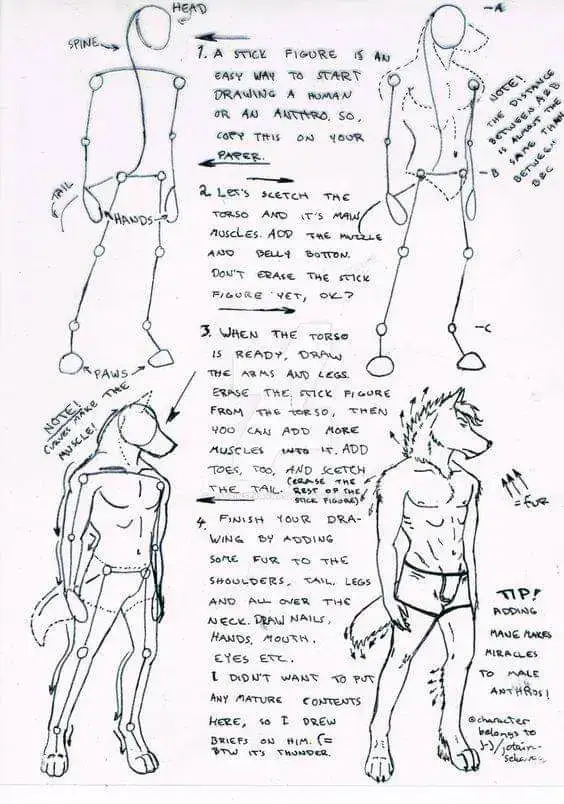 HEAD
SPINE
1. A STICK FIGURE IS AN
EASY WAY TO START
DRAWING A HUMAN
OR AN ANTHRO. SO,
COPY THIS ON YOUR
PAPER.
TAIL
HANDS
PAWS
-A
NOTE!
THE DISTANCE
BETWEEN A&B
IS ALMOST THE
SAME THAN
BETWEEN
B&C
-B
-C
2. LET'S SCETCH THE
TORSO AND IT'S MAIN
MUSCLES. ADD THE MUZZLE
AND BELLY BOTTON.
DON'T ERASE THE STICK
FIGURE YET, OK?
3. WHEN THE TORSO
IS READY, DRAW
THE ARMS AND LEGS.
ERASE THE STICK FIGURE
FROM THE TORSO, THEN
YOU CAN ADD MORE
MUSCLES INTO IT. ADD
TOES, TOO, AND SCETCH
THE TAIL. (ERASE THE
REST OF THE
STICK FIGURE)
NOTE!
CURVES MAKE THE
MUSCLE!
4. FINISH YOUR DRA-
WING BY ADDING
SOME FUR TO THE
SHOULDERS, TAIL, LEGS
AND ALL OVER THE
NECK. DRAW NAILS,
HANDS, MOUTH,
EYES ETC.
I DIDN'T WANT TO PUT
ANY MATURE CONTENTS
HERE, SO I DREW
BRIEFS ON HIM. (=
BTW IT'S THUNDER.
= FUR
TIP!
ADDING
MANE MAKES
MIRACLES
TO MALE
ANTHROS!
©character
belongs to